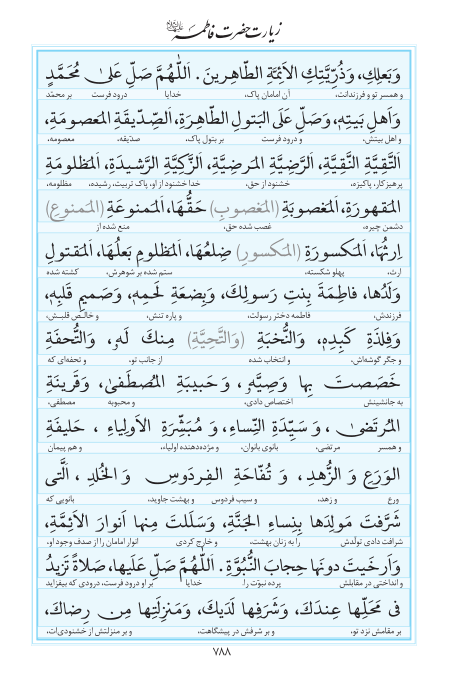 زیارت حضرت فاطمه
وَبَعلِكِ، وَذُرِّيَّتِكِ الاَئِمَّةِ الطّاهِرينَ. اَللّٰهُمَّ صَلِّ عَلىٰ مُحَمَّدٍ
و همسر تو و فرزندانت، آن امامان پاک، خدایا درود فرست بر محمّد
وَاَهلِ بَيتِهِ، وَصَلِّ عَلَى البَتولِ الطّاهِرَةِ، اَلصِّدّيقَةِ المَعصومَةِ،
و اهل بیتش، و درود فرست بر بتول پاک، صدّیقه، معصومه،
اَلتَّقِيَّةِ النَّقِيَّةِ، اَلرَّضِيَّةِ المَرضِيَّةِ، اَلزَّكِيَّةِ الرَّشيدَةِ، اَلمَظلومَةِ
پرهیزکار، پاکیزه، خشنود از حق، خدا خشنود از او، پاک تربیت، رشیده، مظلومه،
المَقهورَةِ، اَلمَغصوبَةِ (المَغصوبِ) حَقُّها، اَلمَمنوعَةِ (المَمنوعِ)
دشمن چیره، غصب شده حق، منع شده از
اِرثُها، اَلمَكسورَةِ (المَكسورِ) ضِلعُها، اَلمَظلومِ بَعلُها، اَلمَقتولِ
ارث، پهلو شکسته، ستم شده بر شوهرش، کشته شده
وَلَدُها، فاطِمَةَ بِنتِ رَسولِكَ، وَبِضعَةِ لَحمِهِ، وَصَميمِ قَلبِهِ،
فرزندش، فاطمه دختر رسولت، و پاره تنش، و خالص قلبش،
وَفِلذَةِ كَبِدِهِ، وَالنُّخبَةِ (وَالتَّحِيَّةِ) مِنكَ لَهُ، وَالتُّحفَةِ
و جگر گوشه‌اش، و انتخاب شده از جانب تو، و تحفه‌ای که
خَصَصتَ بِها وَصِيَّهُ، وَحَبيبَةِ المُصطَفىٰ، وَقَرينَةِ
به جانشینش اختصاص دادی، و محبوبه مصطفی،
المُرتَضىٰ، وَسَيِّدَةِ النِّساءِ، وَ مُبَشِّرَةِ الاَولِياءِ، حَليفَةِ
و همسر مرتضی، بانوی بانوان، و مژده‌دهنده اولیاء، و هم پیمان
الوَرَعِ وَ الزُّهدِ، وَ تُفّاحَةِ الفِردَوسِ وَ الخُلدِ، اَلَّتى
ورع و زهد، و سیب فردوس و بهشت جاوید، بانویی که
شَرَّفتَ مَولِدَها بِنِساءِ الجَنَّةِ، وَسَلَلتَ مِنها اَنوارَ الاَئِمَّةِ،
شرافت دادی تولّدش را به زنان بهشت، و خارج کردی انوار امامان را از صدف وجود او،
وَاَرخَيتَ دونَها حِجابَ النُّبُوَّةِ. اَللّٰهُمَّ صَلِّ عَلَيها، صَلاةً تَزيدُ
و انداختی در مقابلش پرده نبوّت را. خدایا بر او درود فرست، درودی که بیفزاید
فى مَحَلِّها عِندَكَ، وَشَرَفِها لَدَيكَ، وَمَنزِلَتِها مِن رِضاكَ،
بر مقامش نزد تو، و بر شرفش در پیشگاهت، و بر منزلتش از خشنودی‌ات،
۷۸۸